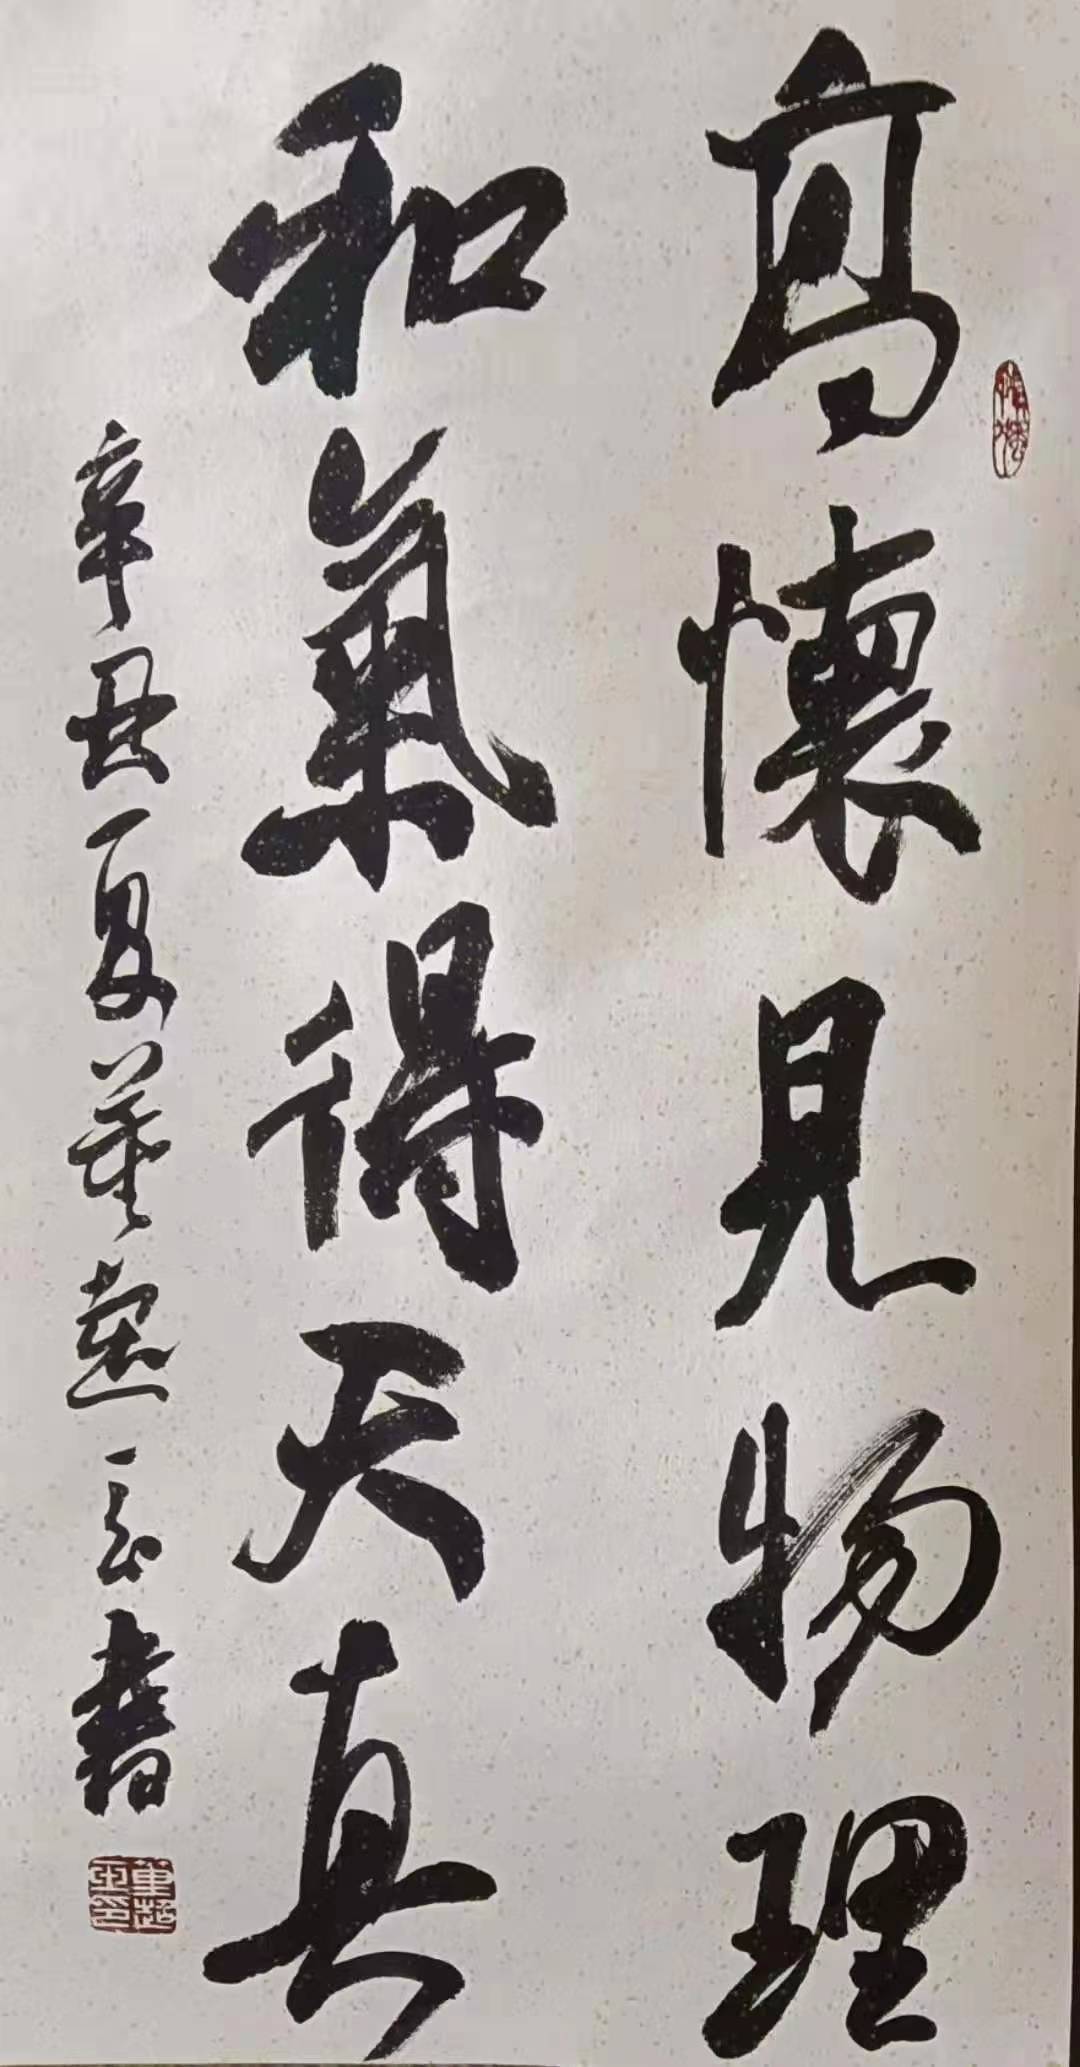 高懷見物理
和氣得天真
辛丑夏董超云書